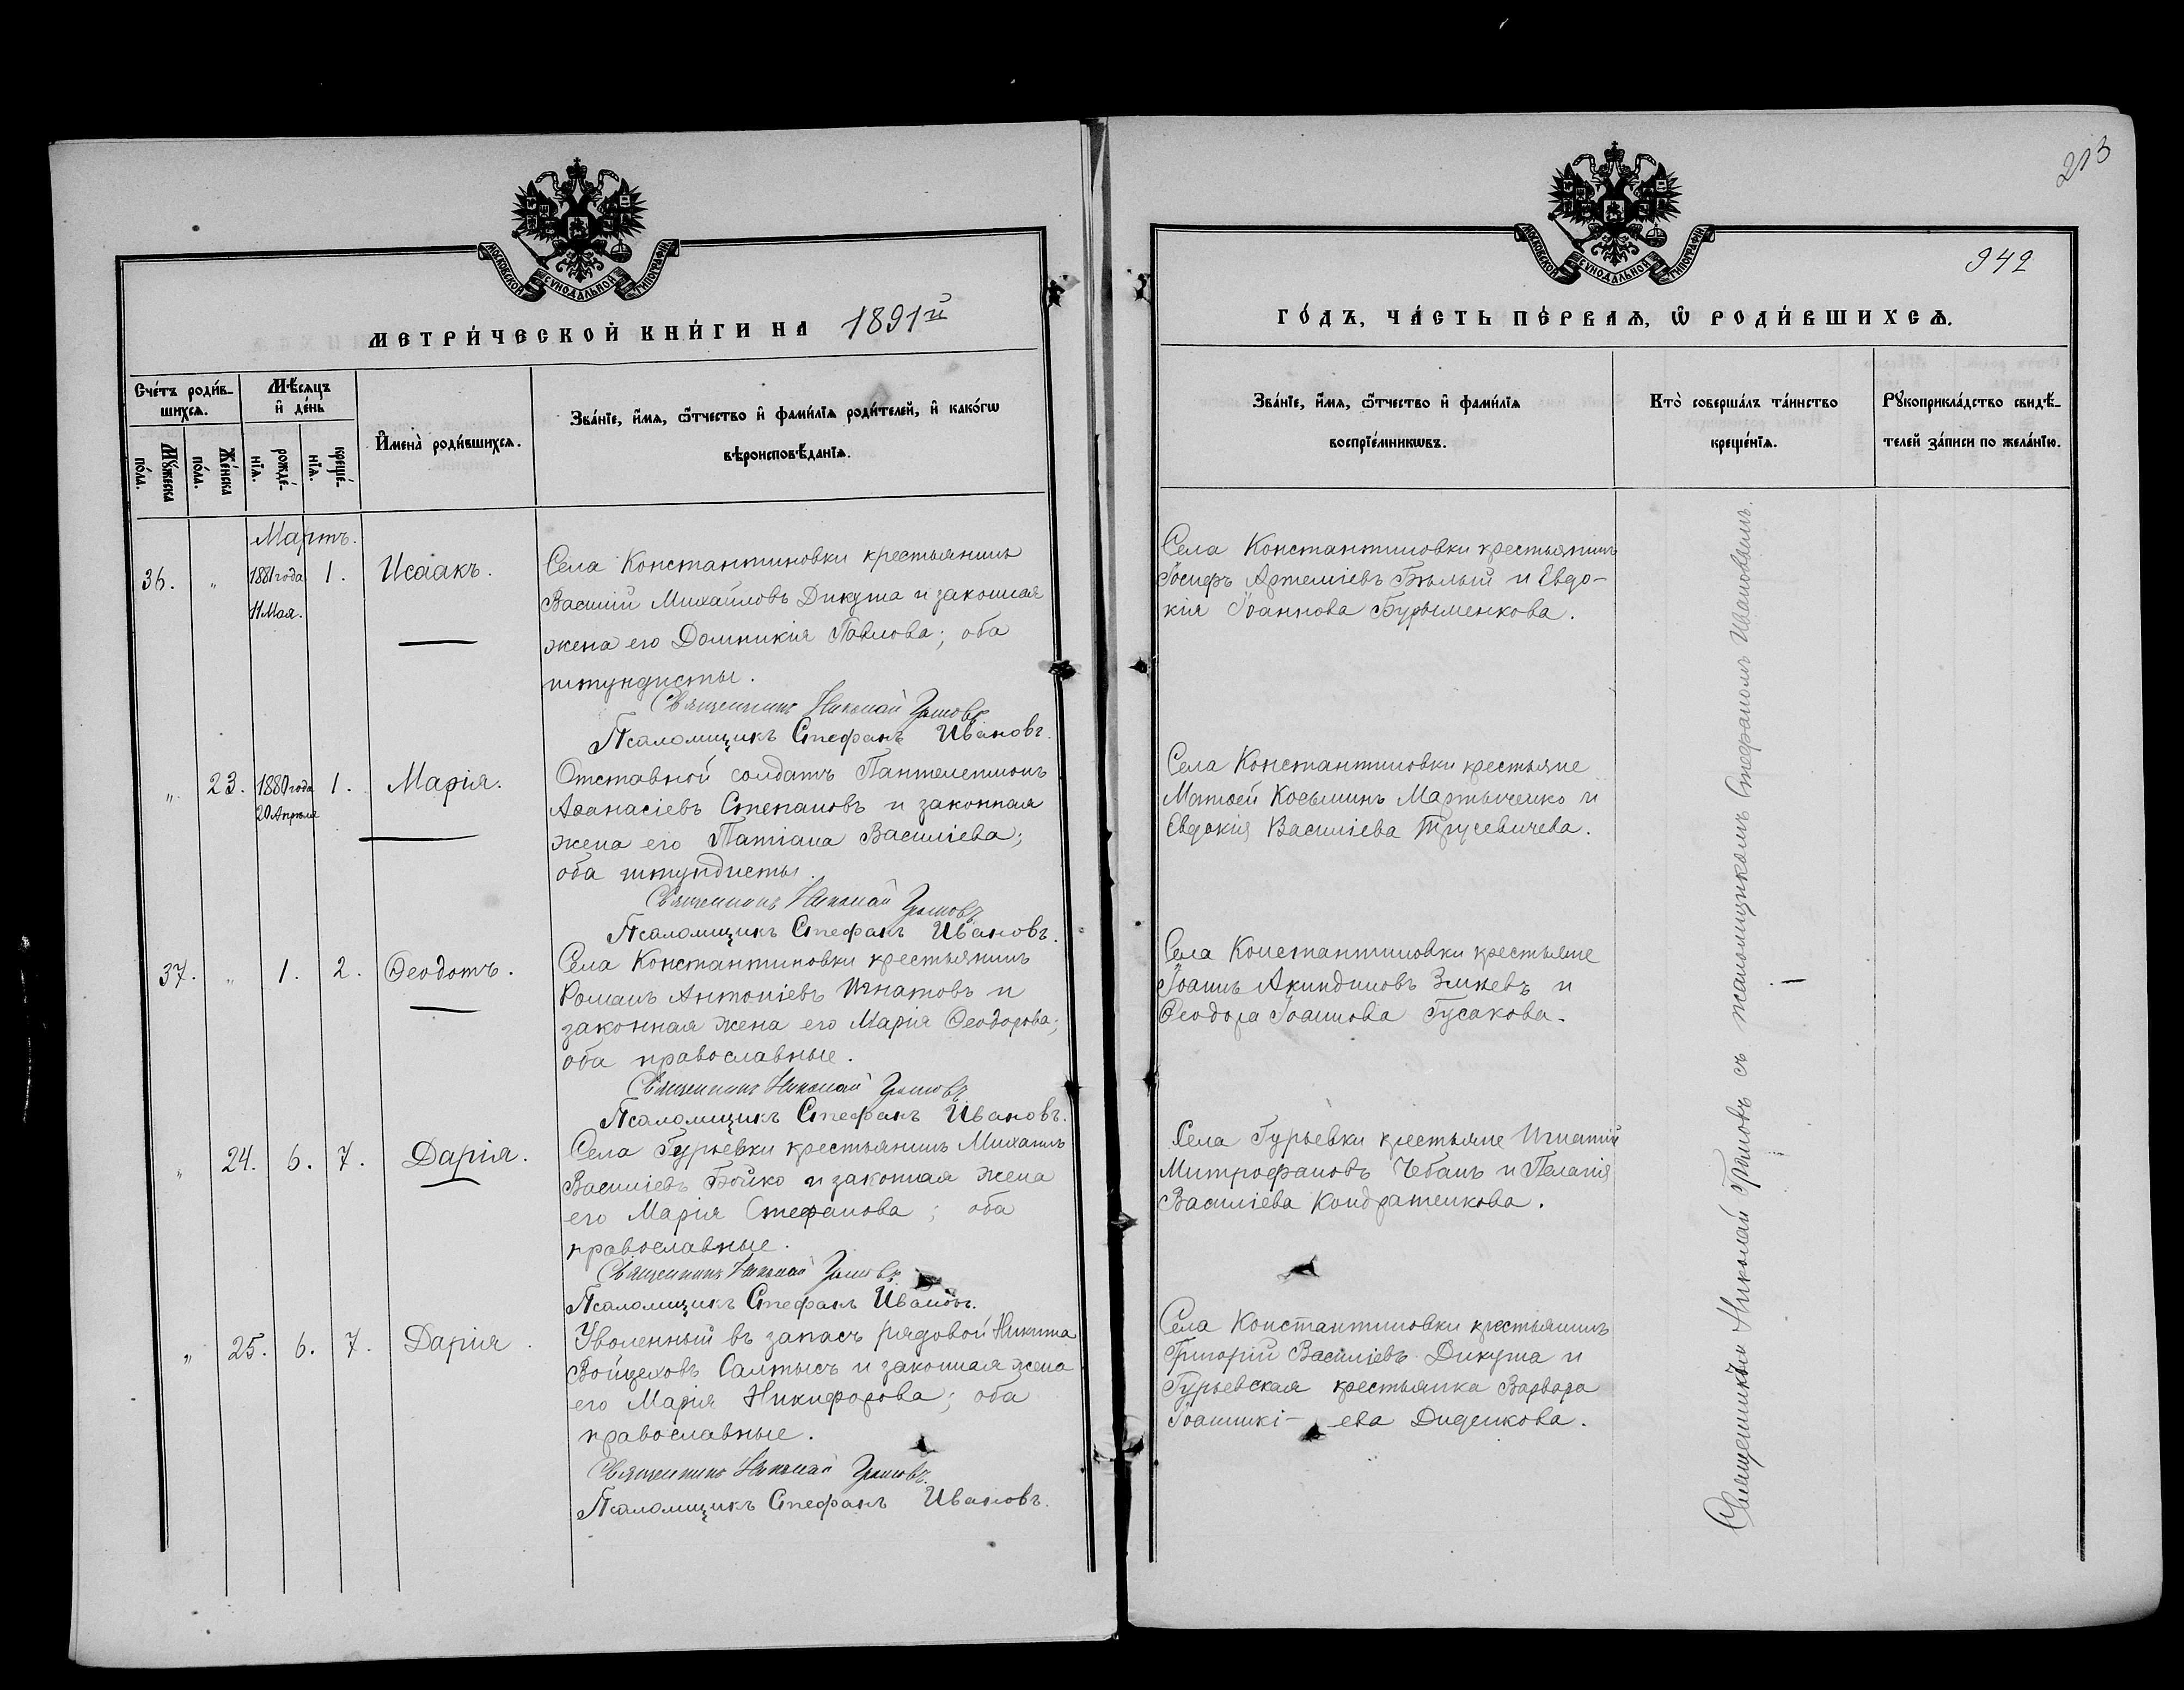 МОСКОВСКОЙ СѴНОДАЛЬНОЙ ТИПОГРАФІИ
МЕТРИ́ЧЕСКОЙ КНИ́ГИ НА 1891й
Сче́тъ роди́в-
шихсѧ.
Мѣ́сѧцъ
и҆ де́нь
Мꙋ́жеска
по́ла.
Же́нска
по́ла.
рожде́-
нїѧ.
креще́-
нїѧ.
И҆мена̀ роди́вшихсѧ.
Зва́нїе, и҆́мѧ, ѻ҆́тчество и҆ фами́лїѧ роди́телей, и҆ како́гѡ
вѣроисповѣ́данїѧ.
Мартъ.
36. " 1881 года 1. Исаакъ.
11 Мая.
Села Константиновки крестьянинъ
Василій Михайловъ Дикуша и законная
жена его Домникія Павлова; оба
штундисты.
Священникъ Николай
Псаломщикъ Стефанъ Ивановъ.
" 23. 1880 года 1. Марія.
20 Апрѣля
Отставной солдатъ Пантелеимонъ
Аѳанасіевъ Степановъ и законная
жена его Татіана Василіева;
оба штундисты.
Священникъ Николай
Псаломщикъ Стефанъ Ивановъ.
37. " 1. 2. Ѳеодотъ.
Села Константиновки крестьянинъ
Романъ Антоніевъ Игнатовъ и
законная жена его Марія Ѳеодорова;
оба православные.
Священникъ Николай
Псаломщикъ Стефанъ Ивановъ.
" 24. 6. 7. Дарія.
Села Гурьевки крестьянинъ Михаилъ
Василіевъ Бойко и законная жена
его Марія Стефанова; оба
православные.
Священникъ Николай
Псаломщикъ Стефанъ Ивановъ.
" 25. 6. 7. Дарія.
Уволенный въ запасъ рядовой Никита
Войцеховъ Салтысъ и законная жена
его Марія Никифорова; оба
православные.
Священникъ Николай
Псаломщикъ Стефанъ Ивановъ.
213
942
МОСКОВСКОЙ СѴНОДАЛЬНОЙ ТИПОГРАФІИ
ГО́ДЪ, ЧА́СТЬ ПЕ́РВАѦ, Ѡ҆ РОДИ́ВШИХСѦ.
Зва́нїе, и҆́мѧ, ѻ҆́тчество и҆ фами́лїѧ
воспрїе́мникѡвъ.
Кто̀ соверша́лъ та́инство
креще́нїѧ.
Рꙋкоприкла́дство свидѣ́-
телей за́писи по жела́нїю.
Села Константиновки крестьянинъ
Іосифъ Артеміевъ Бѣлый и Евдо-
кія Іоаннова Бурыменкова.
Села Константиновки крестьяне
Матѳей Косьминъ Мартыченко и
Евдокія Василіева Трусевичева.
Села Константиновки крестьяне
Іоаннъ Акиндиновъ и
Ѳеодора Іоаннова Гусакова.
Села Гурьевки крестьяне Игнатій
Митрофановъ Чебанъ и Пелагія
Василіева Кондратенкова.
Села Константиновки крестьянинъ
Григорій Василіевъ Дикуша и
Гурьевская крестьянка Варвара
Іоанникі- ева Диденкова.
Священникъ Николай съ псаломщикомъ Стефаномъ Ивановымъ.